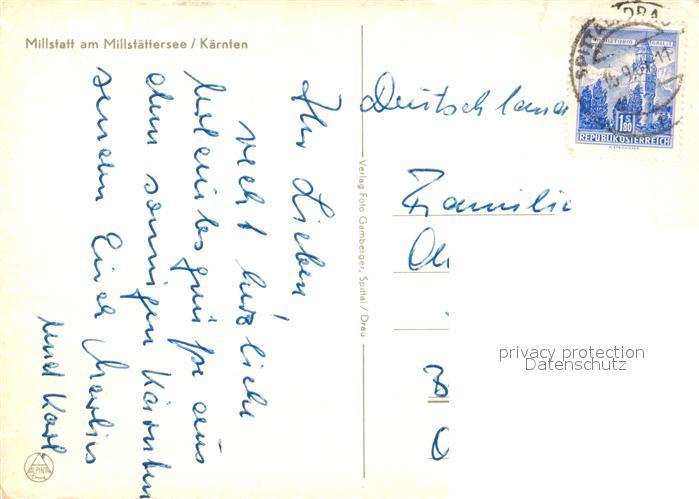 Millstatt am Millstättersee / Kärnten
Ihr Lieben,
recht herzliche
Urlaubsgrüße aus
dem sonnigen Kärnten
senden Euch
und Karl.
Verlag Foto Gamberger, Spittal / Drau
Deutschland
Familie
privacy protection
Datenschutz
SPITTAL DRAU
15.9.
11
1 S
1.80
REPUBLIK ÖSTERREICH
ALPINA